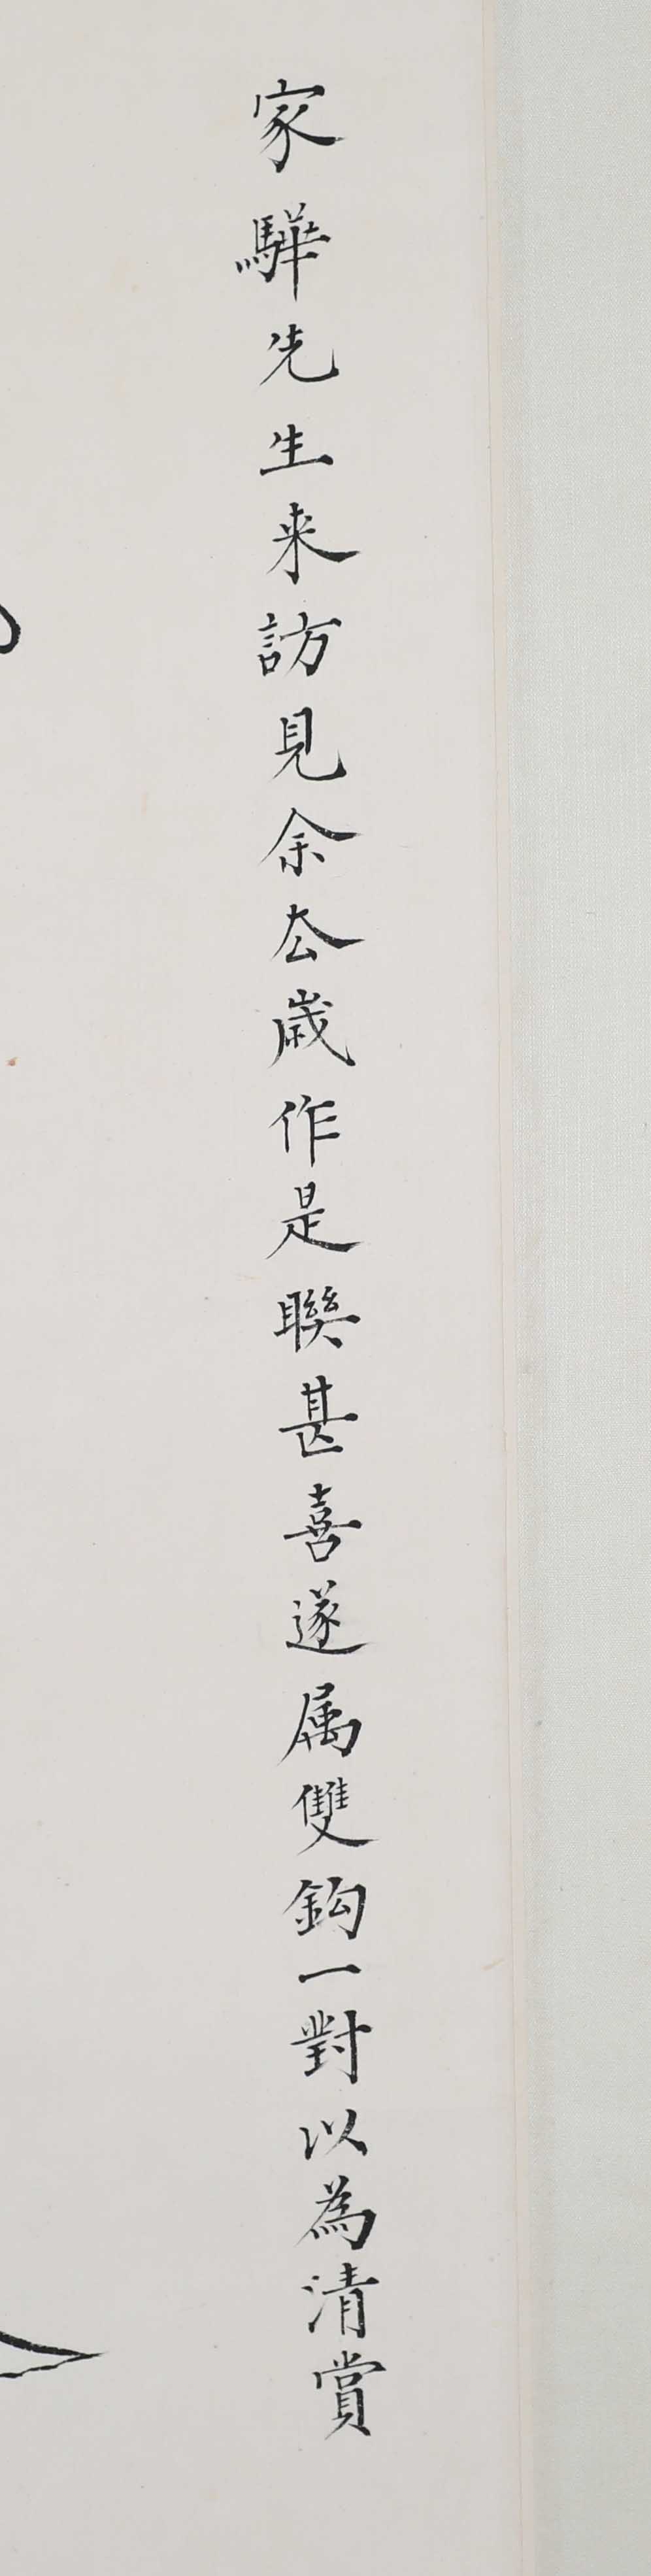 家驊先生来訪見余厺歲作是聯甚喜遂属雙鈎一對以為清賞